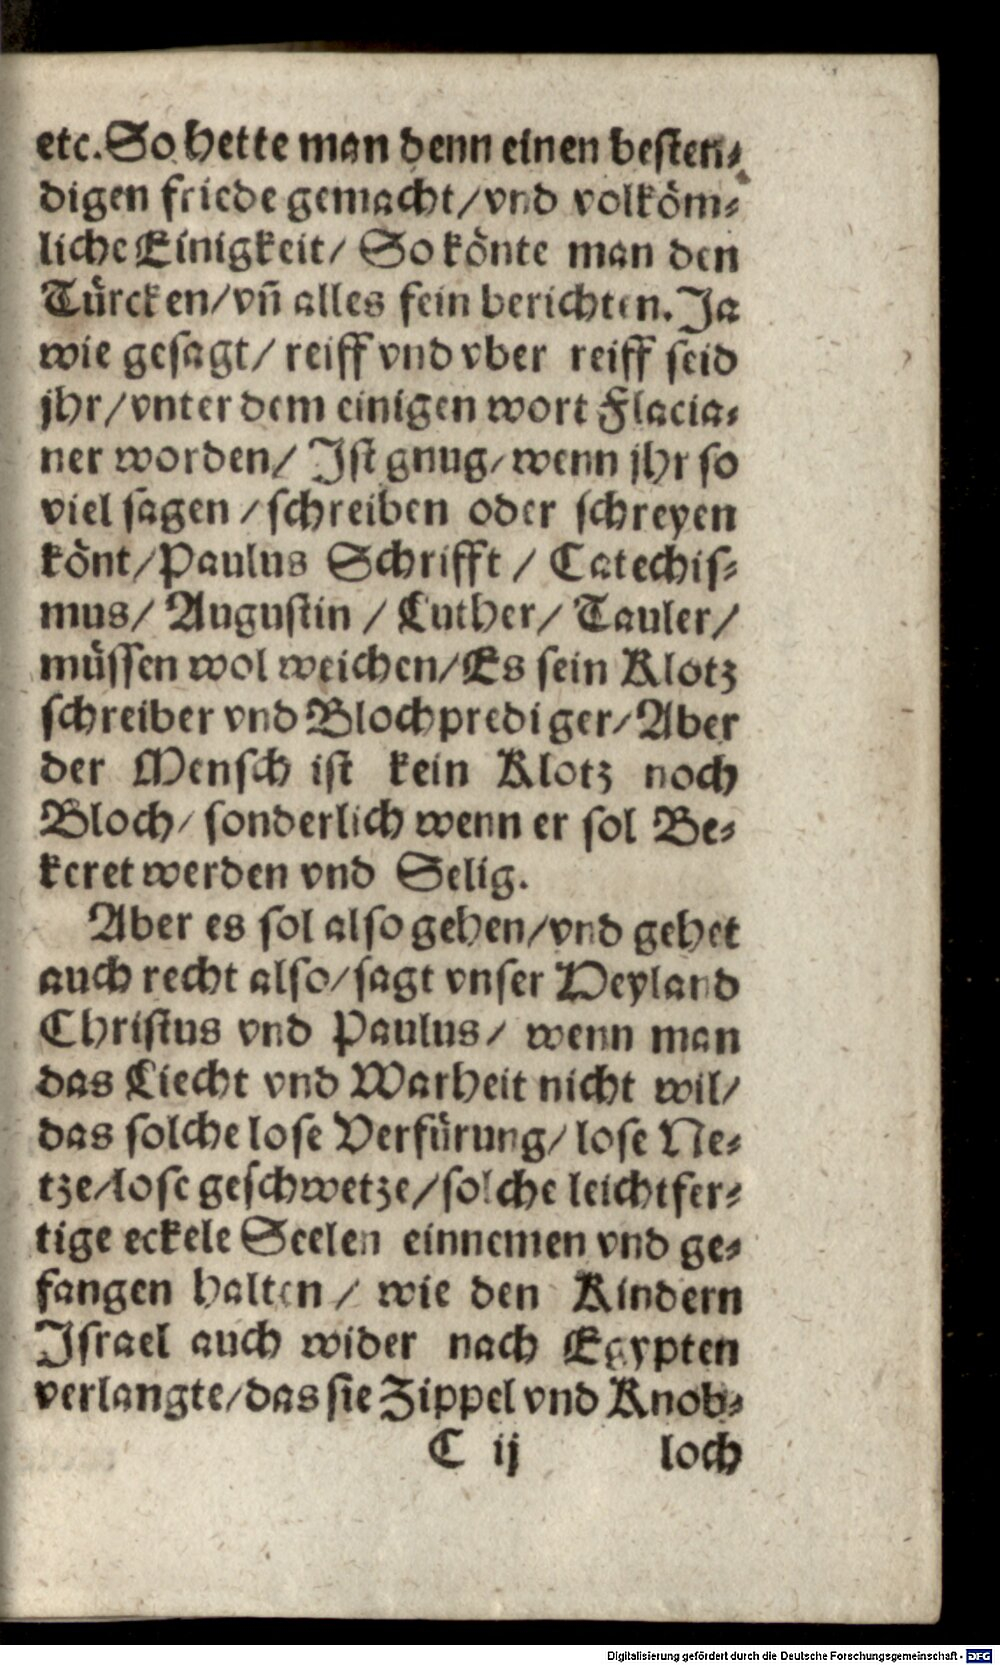 etc. So hette man denn einen besten⸗
digen friede gemacht/ vnd volköm⸗
liche Einigkeit/ So könte man den
Türcken/ vñ alles fein berichten. Ja
wie gesagt/ reiff vnd vber reiff seid
jhr/ vnter dem einigen wort Flacia⸗
ner worden/ Ist gnug/ wenn jhr so
viel sagen/ schreiben oder schreyen
könt/ Paulus Schrifft/ Catechis⸗
mus/ Augustin/ Luther/ Tauler/
müssen wol weichen/ Es sein Klotz
schreiber vnd Blochprediger/ Aber
der Mensch ist kein Klotz noch
Bloch/ sonderlich wenn er sol Be⸗
keret werden vnd Selig.
Aber es sol also gehen/ vnd gehet
auch recht also/ sagt vnser Heyland
Christus vnd Paulus/ wenn man
das Liecht vnd Warheit nicht wil/
das solche lose Verfürung/ lose Ne⸗
tze/ lose geschwetze/ solche leichtfer⸗
tige eckele Seelen einnemen vnd ge⸗
fangen halten/ wie den Kindern
Israel auch wider nach Egypten
verlangte/ das sie Zippel vnd Knob⸗
C ij loch
Digitalisierung gefördert durch die Deutsche Forschungsgemeinschaft - DFG